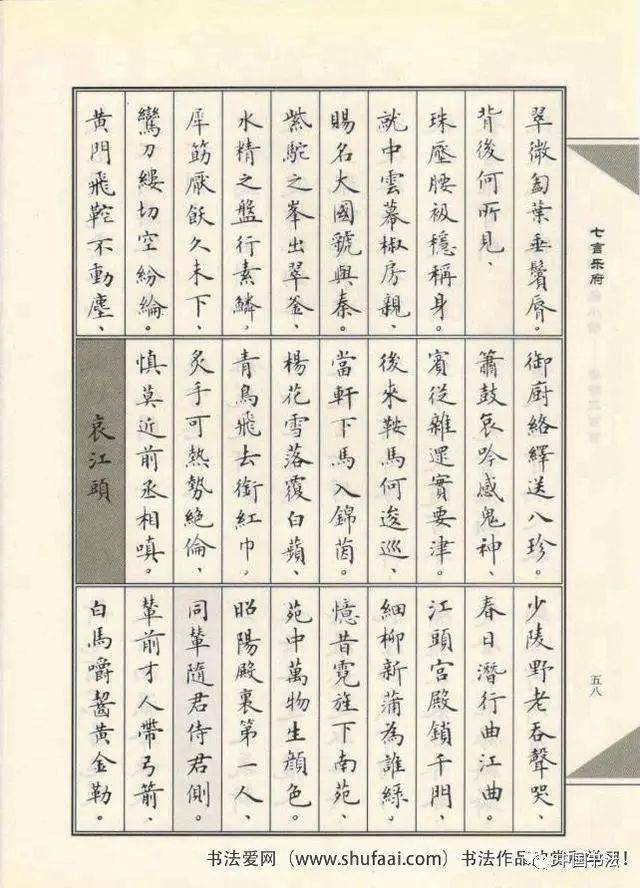 七言乐府
五八
翠微㔩葉垂鬢脣。
背後何所見、
珠壓腰衱穩稱身。
就中雲幕椒房親、
賜名大國虢與秦。
紫駝之峯出翠釜、
水精之盤行素鱗、
犀筯厭飫久未下、
鸞刀縷切空紛綸。
黃門飛鞚不動塵、
御廚絡繹送八珍。
簫鼓哀吟感鬼神、
賓從雜遝實要津。
後來鞍馬何逡巡、
當軒下馬入錦茵。
楊花雪落覆白蘋、
青鳥飛去銜紅巾、
炙手可熱勢絕倫、
慎莫近前丞相嗔。
哀江頭
少陵野老吞聲哭、
春日潛行曲江曲。
江頭宮殿鎖千門、
細柳新蒲為誰綠。
憶昔霓旌下南苑、
苑中萬物生顏色。
昭陽殿裏第一人、
同輦隨君侍君側。
輦前才人帶弓箭、
白馬嚼齧黃金勒。
书法爱网（www.shufaai.com）书法作品的
中国书法